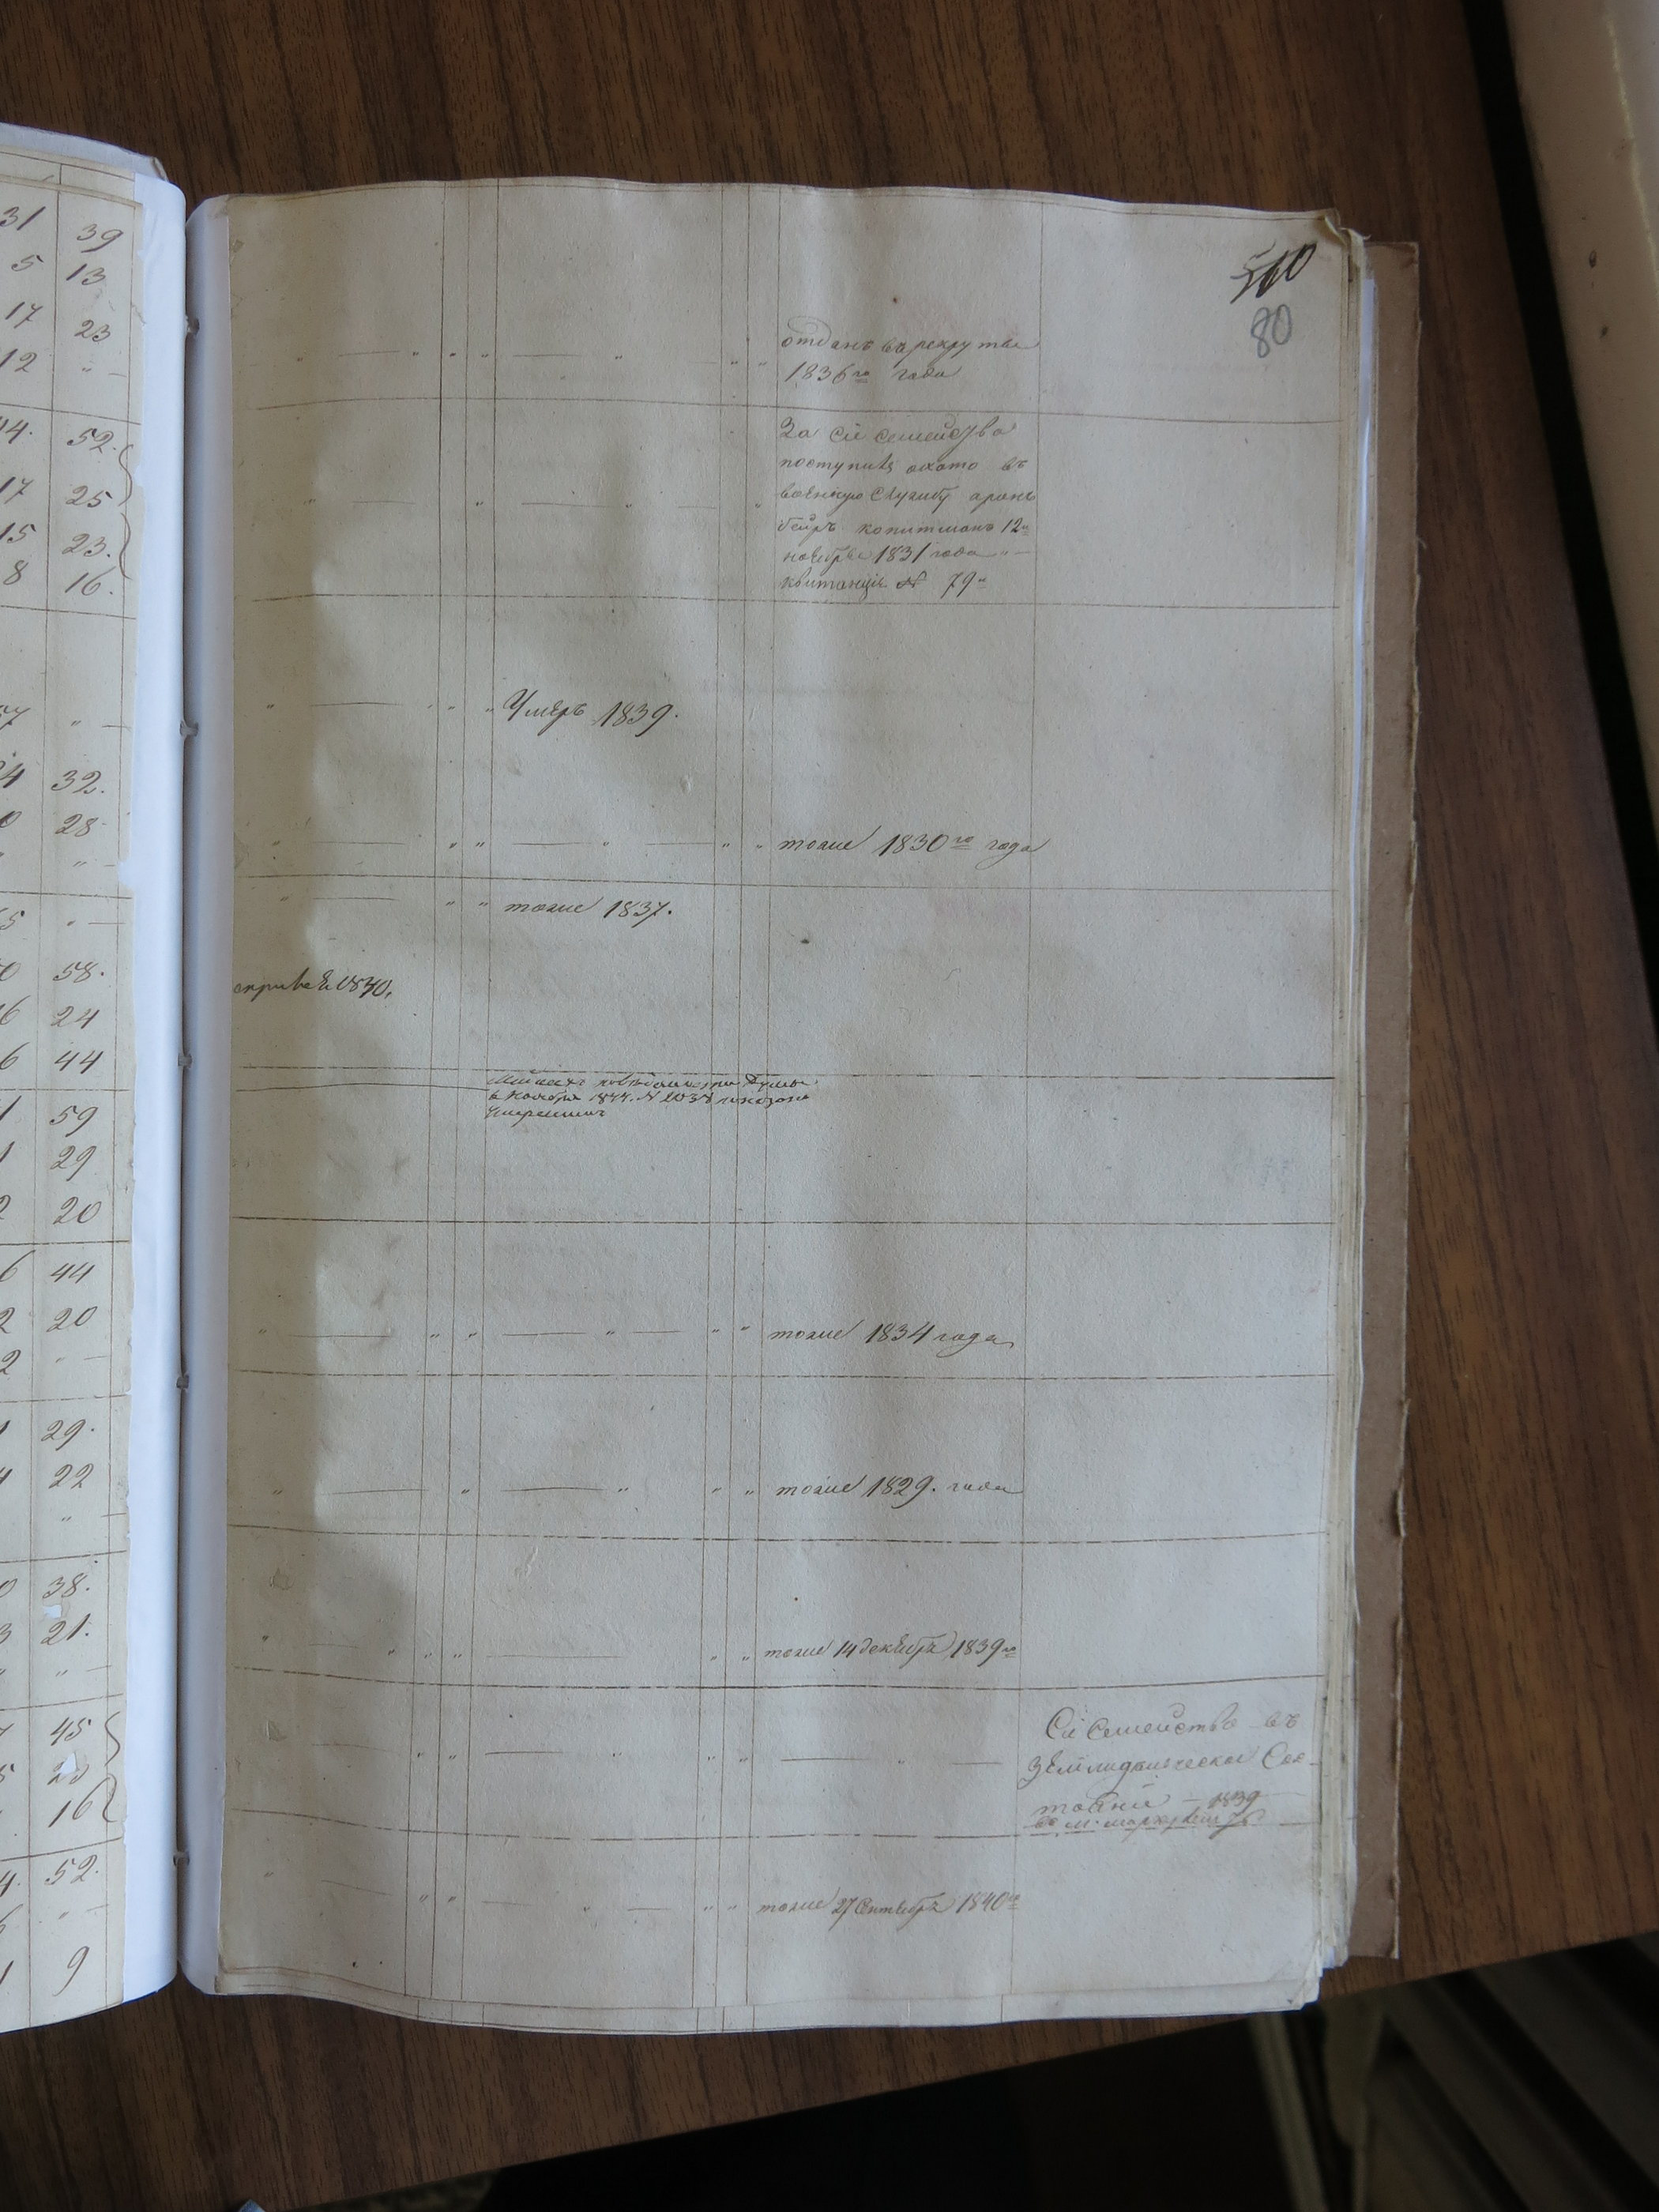 31 39
5 13
17 23
12 "
44. 52.
17 25
15 23.
8 16.
57 "
24 32.
0 28
" "
5 "
0 58.
16 24
6 44
1 59
1 29
2 20
6 44
2 20
2 "
1 29.
4 22
"
0 38.
3 21.
" "
7 45
5
16
4. 52.
6 "
1 9
80
отданъ в рекруты
1836го года
За сіе семейство
поступилъ охото въ
военную службу аронъ
беръ копитманъ 12го
ноебря 1831 года
квитанція № 79
Умеръ 1839.
тоже 1830го года
тоже 1837.
1840.
ноября 1844. №
умершимъ
тоже 1834 года
тоже 1829. года
тоже 14 декебря 1839го
Сіе Семейство въ
Земледелческое Сос-
тоянии 1839
тоже 27 Сентебря 1840го